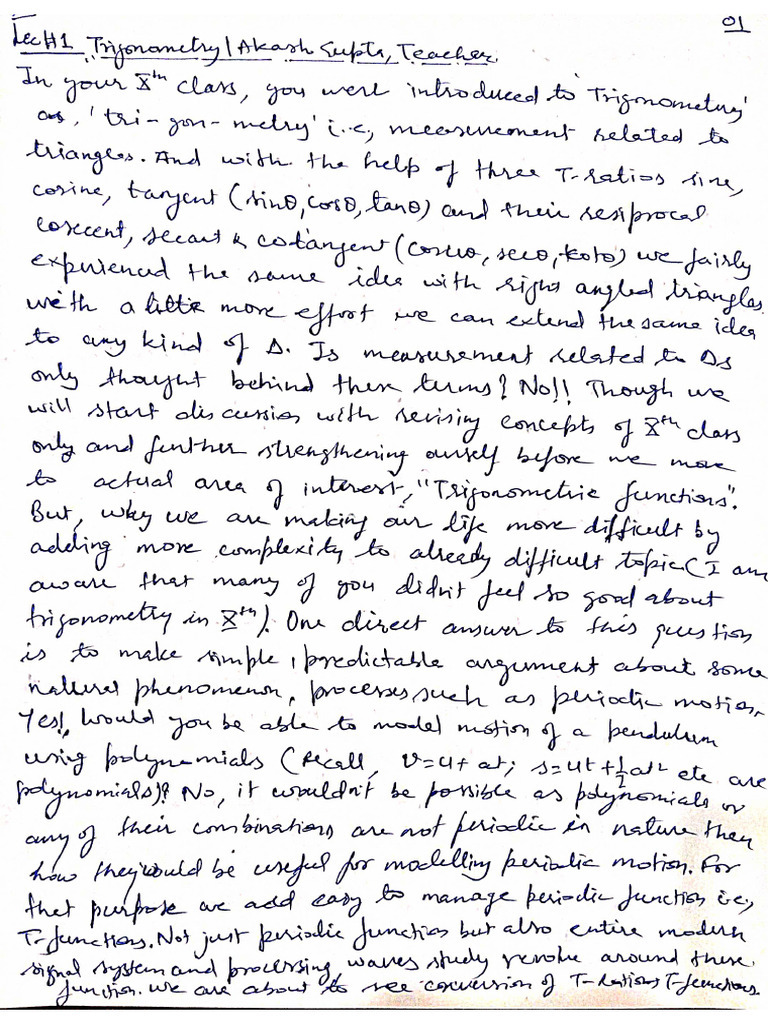 01
Lec#1 Trigonometry/Akash Gupta, Teacher
In your Xth class, you were introduced to 'Trigonometry'
as, 'tri-gon-metry' i.e, measurement related to
triangles. And with the help of three T-ratios sine,
cosine, tangent (sinθ, cosθ, tanθ) and their resiprocal
cosecent, secant & cotangent (cosecθ, secθ, kotθ) we fairly
experienced the same idea with right angled triangles.
with a little more effort we can extend the same idea
to any kind of Δ. Is measurement related to Δs
only thought behind these terms? No!! Though we
will start discussion with revising concepts of Xth class
only and further strengthening ourself before we move
to actual area of interest, "Trigonometric functions".
But, why we are making our life more difficult by
adding more complexity to already difficult topic (I am
aware that many of you didn't feel so good about
trigonometry in Xth). One direct answer to this question
is to make simple, predictable argument about some
natural phenomenon, processes such as periodic motion.
Yes!, Would you be able to model motion of a pendulum
using polynomials (Recall, v=u+at; s=ut+½at² etc are
polynomials)? No, it wouldn't be possible as polynomials or
any of their combinations are not periodic in nature they
how they would be useful for modelling periodic motion. For
that purpose we add easy to manage periodic function i.e,
T-functions. Not just periodic function but also entire modern
signal system and processing, waves study revolve around these
function. we are about to see conversion of T-Ratios T-functions.